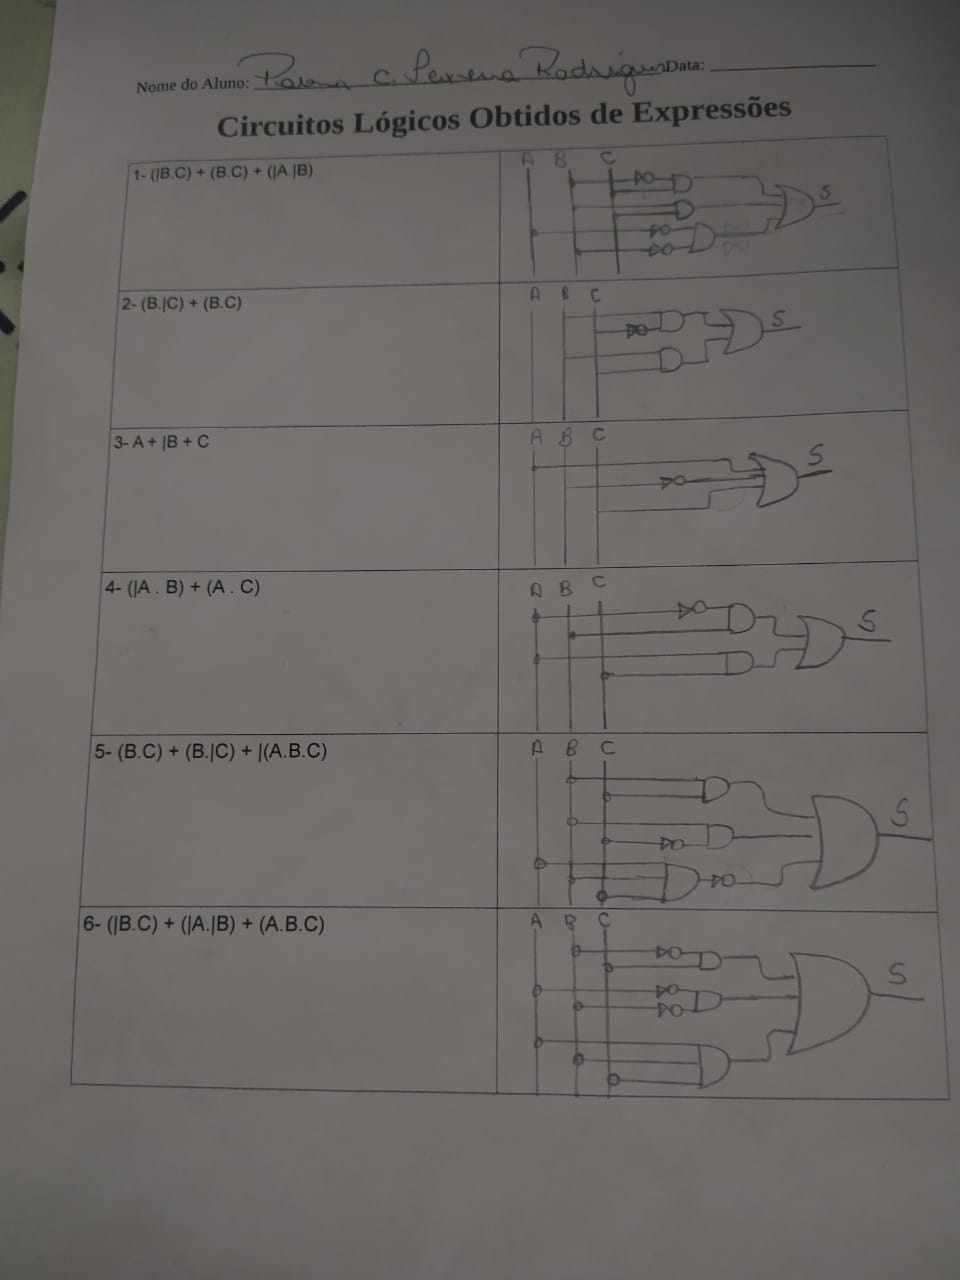 Nome do Aluno: C. Rodrigues Data:
Circuitos Lógicos Obtidos de Expressões
1- (|B.C) + (B.C) + (|A.|B)
A B C
S
2- (B.|C) + (B.C)
A B C
S
3- A + |B + C
A B C
S
4- (|A . B) + (A . C)
A B C
S
5- (B.C) + (B.|C) + |(A.B.C)
A B C
S
6- (|B.C) + (|A.|B) + (A.B.C)
A B C
S